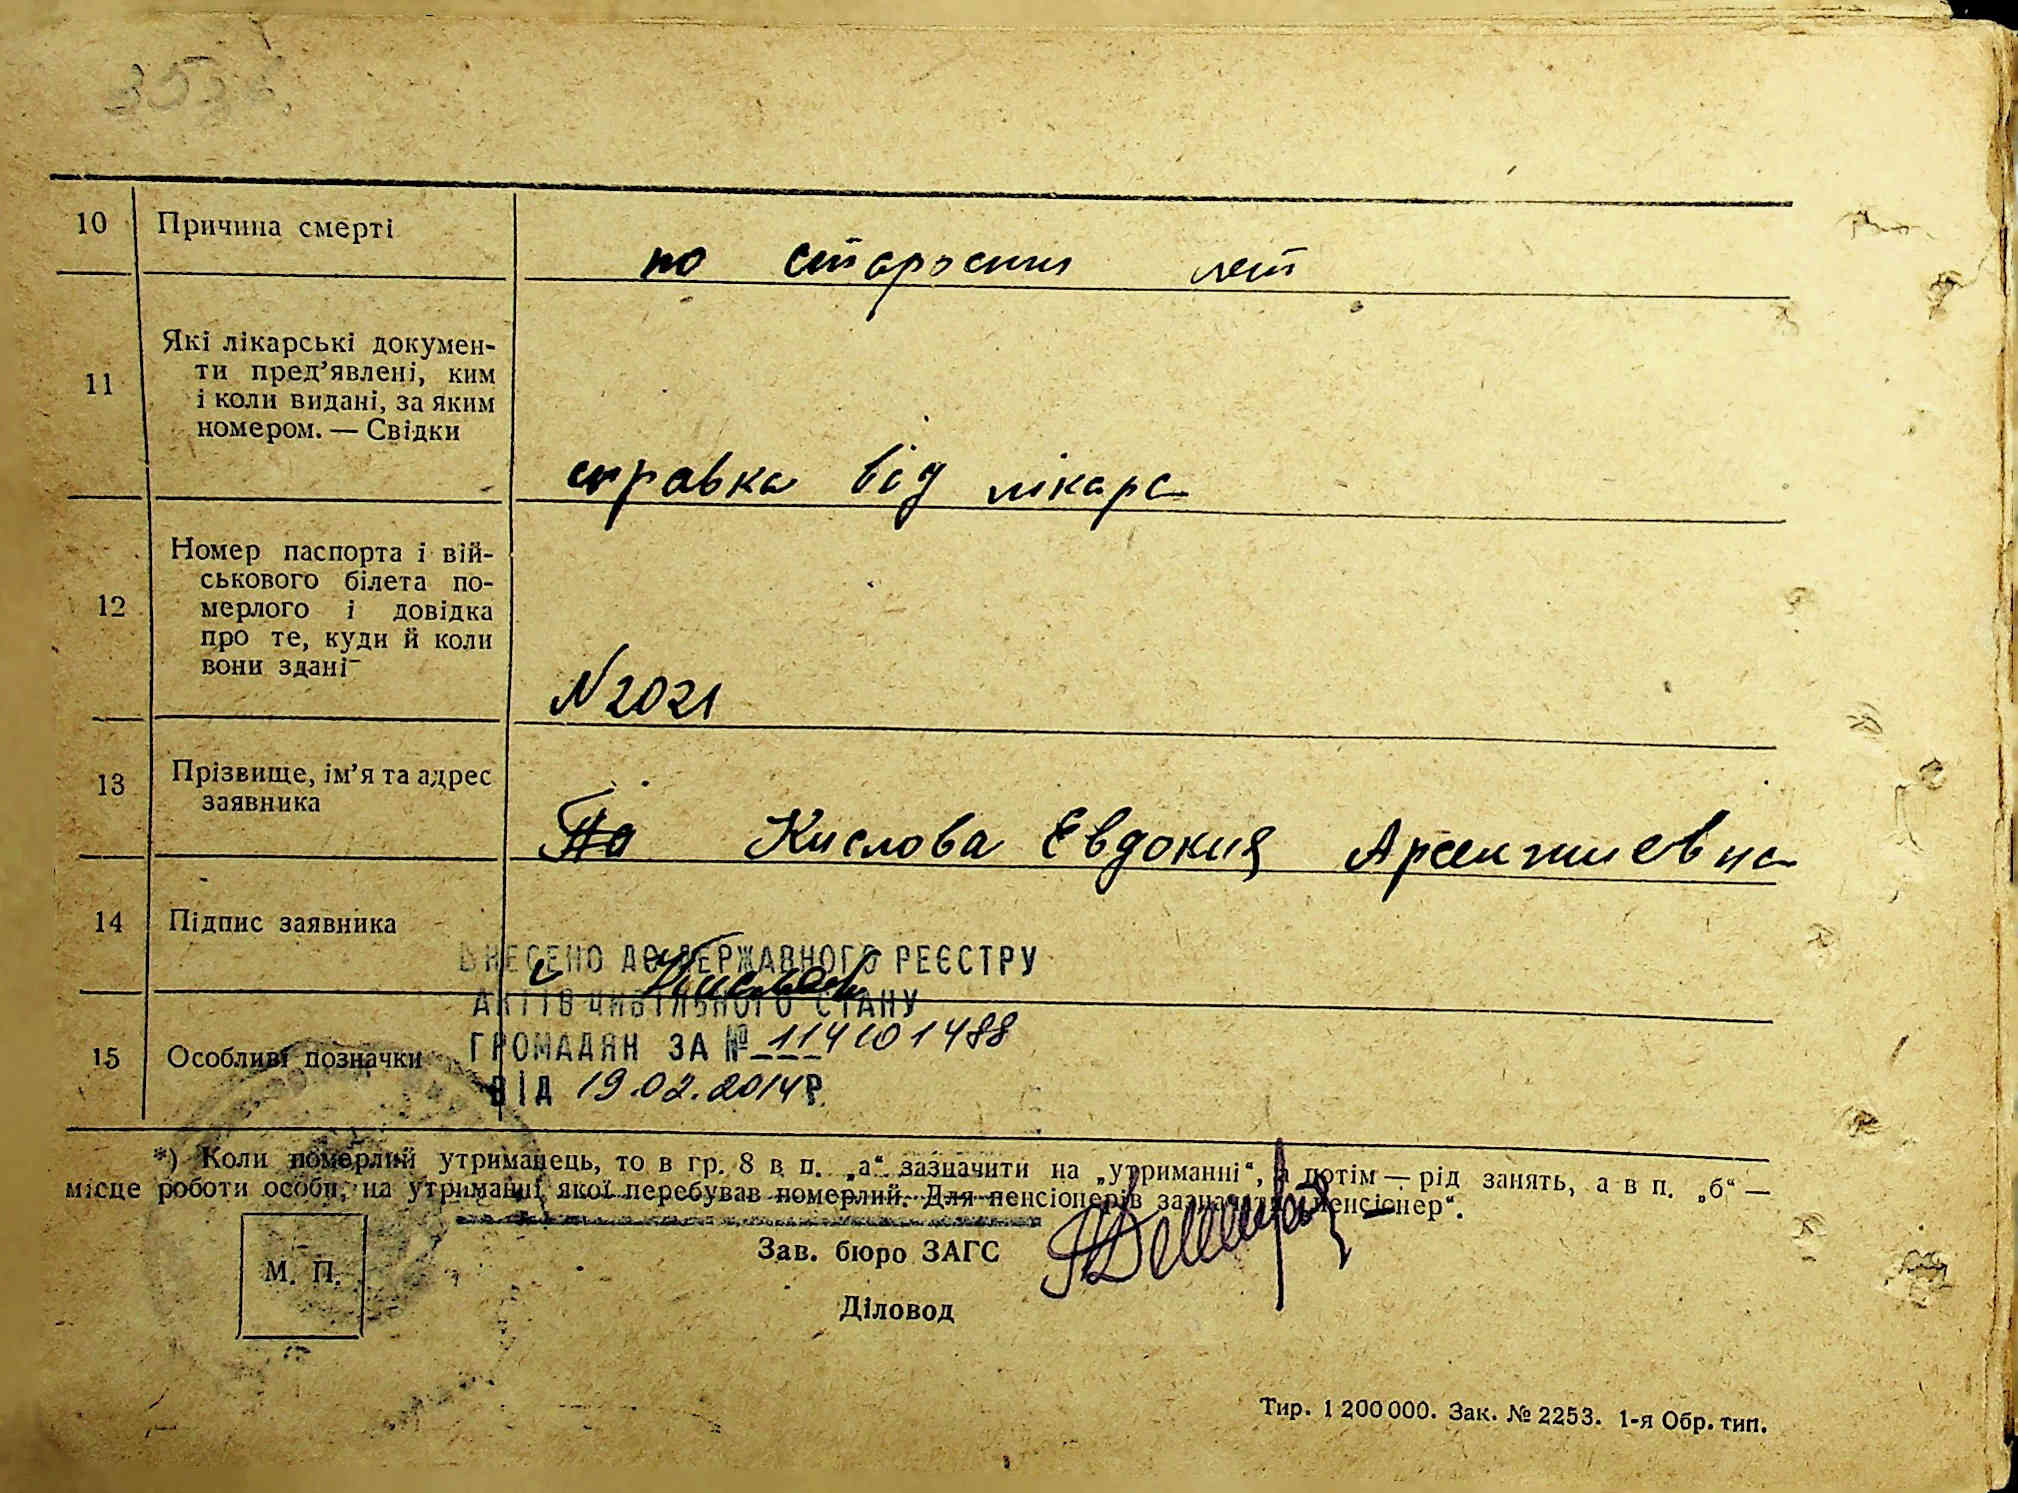 10 Причина смерті
по старости лет
11 Які лікарські докумен-
ти пред’явлені, ким
і коли видані, за яким
номером. — Свідки
справка від лікара
12 Номер паспорта і вій-
ськового білета по-
мерлого і довідка
про те, куди й коли
вони здані
N 2021
13 Прізвище, ім’я та адрес
заявника
Кислова Евдокия Арсентиевна
14 Підпис заявника
ВНЕСЕНО ДО ДЕРЖАВНОГО РЕЄСТРУ
АКТІВ ЦИВІЛЬНОГО СТАНУ
ГРОМАДЯН ЗА № 114101488
15 Особливі позначки
ВІД 19.02.2014Р.
*) Коли померлий утриманець, то в гр. 8 в п. „а“ зазначити на „утриманні“, а потім — рід занять, а в п. „б“ —
місце роботи особи, на утриманні якої перебував померлий. Для пенсіонерів зазначити „пенсіонер“.
Зав. бюро ЗАГС
М. П.
Діловод
Тир. 1 200 000. Зак. № 2253. 1-я Обр. тип.